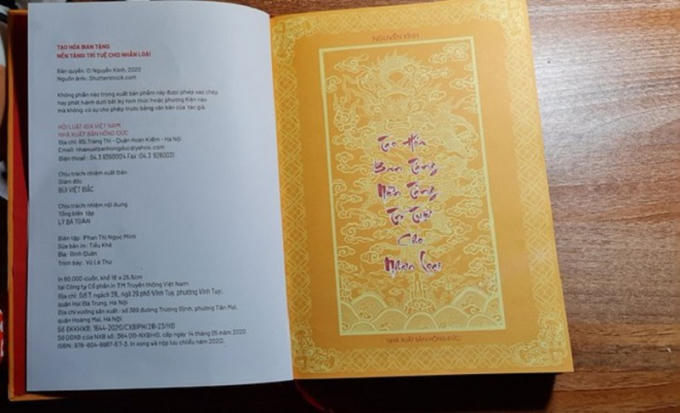 TẠO HÓA BAN TẶNG
NỀN TẢNG TRÍ TUỆ CHO NHÂN LOẠI
Bản quyền: © Nguyễn Kình, 2020
Nguồn ảnh: Shutterstock.com
Không phần nào trong xuất bản phẩm này được phép sao chép,
hay phát hành dưới bất kỳ hình thức hoặc phương tiện nào
mà không có sự cho phép trước bằng văn bản của tác giả.
HỘI LUẬT GIA VIỆT NAM
NHÀ XUẤT BẢN HỒNG ĐỨC
Địa chỉ: 65 Tràng Thi - Quận Hoàn Kiếm - Hà Nội
Email: nhaxuatbanhongduc@yahoo.com
Điện thoại: 04.3 9260024 Fax: 04.3 9260031
Chịu trách nhiệm xuất bản
Giám đốc
BÙI VIỆT BẮC
Chịu trách nhiệm nội dung
Tổng biên tập
LÝ BÁ TOÀN
Biên tập: Phan Thị Ngọc Minh
Sửa bản in: Tiểu Khê
Bìa: Đinh Quân
Trình bày: Vũ Lê Thư
In 60.000 cuốn, khổ 18 x 25.5cm
tại Công ty Cổ phần in TM Truyền thông Việt Nam
Địa chỉ: Số 7, ngách 29, ngõ 29 phố Vĩnh Tuy, phường Vĩnh Tuy,
quận Hai Bà Trưng, Hà Nội
Địa chỉ xưởng sản xuất: số 389 đường Trương Định, phường Tân Mai,
quận Hoàng Mai, Hà Nội
Số ĐKKHXB: 1644-2020/CXBIPH/28-23/HĐ
Số QĐXB của NXB số: 364/QĐ-NXBHĐ, cấp ngày 14 tháng 05 năm 2020
In xong và nộp lưu chiểu năm 2020.
NGUYỄN KÌNH
Tạo Hóa
Ban Tặng
Nền Tảng
Trí Tuệ
Cho
Nhân Loại
NHÀ XUẤT BẢN HỒNG ĐỨC